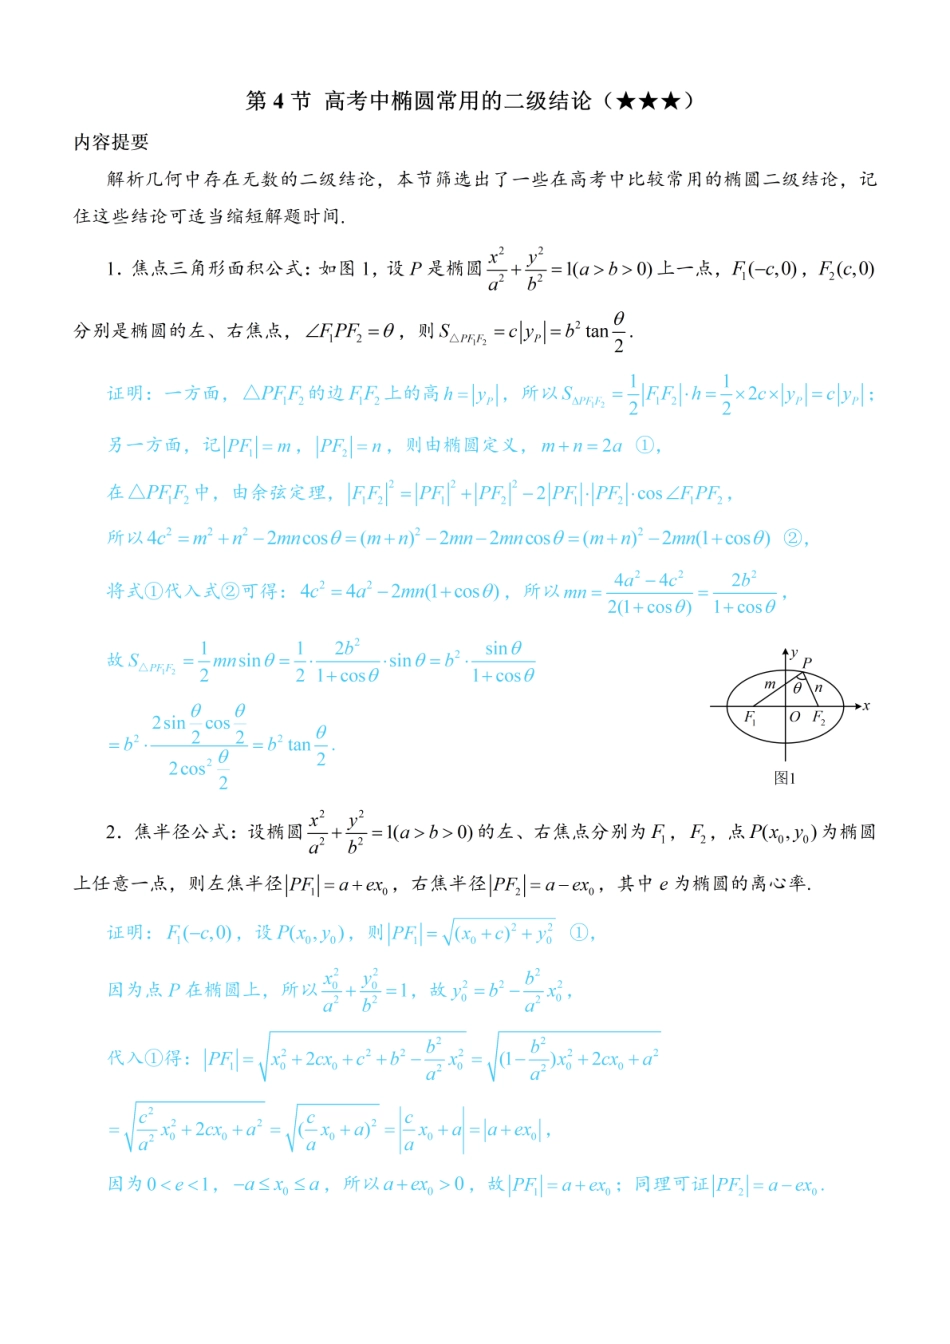 第 4 节 高考中椭圆常用的二级结论（★★★）
内容提要
解析几何中存在无数的二级结论，本节筛选出了一些在高考中比较常用的椭圆二级结论，记
住这些结论可适当缩短解题时间.
1．焦点三角形面积公式：如图 1，设 P 是椭圆 x²/a² + y²/b² = 1(a > b > 0) 上一点，F₁(−c,0)，F₂(c,0)
分别是椭圆的左、右焦点，∠F₁PF₂ = θ，则 S△PF₁F₂ = c|y_P| = b² tan θ/2 .
证明：一方面，△PF₁F₂ 的边 F₁F₂ 上的高 h = |y_P|，所以 S△PF₁F₂ = 1/2 |F₁F₂|·h = 1/2 × 2c × |y_P| = c|y_P|；
另一方面，记 |PF₁| = m，|PF₂| = n，则由椭圆定义，m + n = 2a ①，
在 △PF₁F₂ 中，由余弦定理，|F₁F₂|² = |PF₁|² + |PF₂|² − 2|PF₁|·|PF₂|·cos∠F₁PF₂，
所以 4c² = m² + n² − 2mn cosθ = (m + n)² − 2mn − 2mn cosθ = (m + n)² − 2mn(1 + cosθ) ②，
将式①代入式②可得：4c² = 4a² − 2mn(1 + cosθ)，所以 mn = (4a² − 4c²)/(2(1 + cosθ)) = 2b²/(1 + cosθ)，
故 S△PF₁F₂ = 1/2 mn sinθ = 1/2 · 2b²/(1 + cosθ) · sinθ = b² · sinθ/(1 + cosθ)
= b² · (2sin θ/2 cos θ/2)/(2cos² θ/2) = b² tan θ/2 .
y
P
m θ n
F₁ O F₂ x
图1
2．焦半径公式：设椭圆 x²/a² + y²/b² = 1(a > b > 0) 的左、右焦点分别为 F₁，F₂，点 P(x₀, y₀) 为椭圆
上任意一点，则左焦半径 |PF₁| = a + ex₀，右焦半径 |PF₂| = a − ex₀，其中 e 为椭圆的离心率.
证明：F₁(−c,0)，设 P(x₀, y₀)，则 |PF₁| = √((x₀ + c)² + y₀²) ①，
因为点 P 在椭圆上，所以 x₀²/a² + y₀²/b² = 1，故 y₀² = b² − b²/a² x₀²，
代入①得：|PF₁| = √(x₀² + 2cx₀ + c² + b² − b²/a² x₀²) = √((1 − b²/a²)x₀² + 2cx₀ + a²)
= √(c²/a² x₀² + 2cx₀ + a²) = √((c/a x₀ + a)²) = |c/a x₀ + a| = |a + ex₀|，
因为 0 < e < 1，−a ≤ x₀ ≤ a，所以 a + ex₀ > 0，故 |PF₁| = a + ex₀；同理可证 |PF₂| = a − ex₀ .